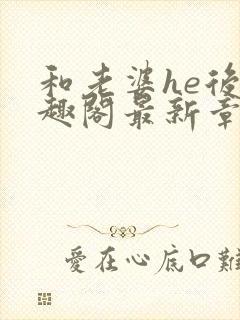 和老婆he後
趣閣最新章
愛在心底口難